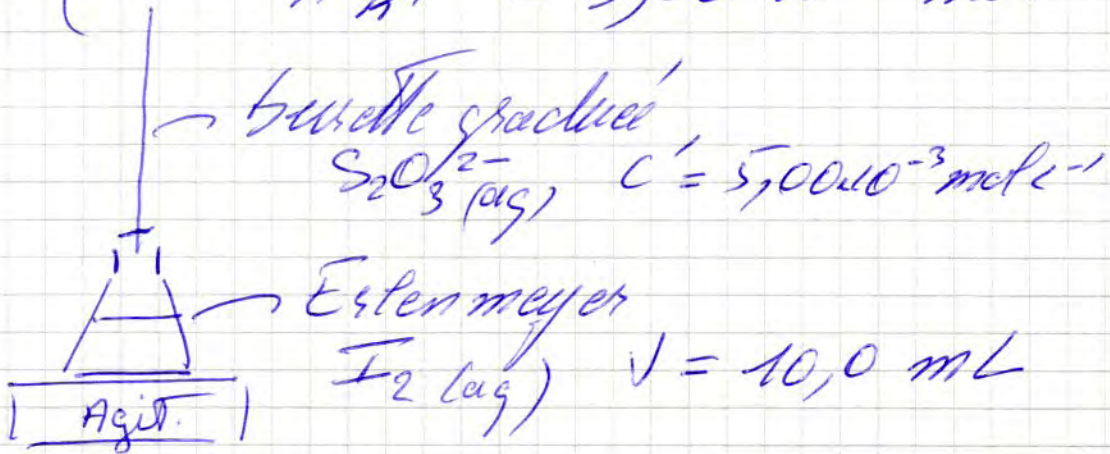 burette graduée
S₂O₃²⁻(aq) C' = 5,00x10⁻³ mol L⁻¹
Erlenmeyer
I₂ (aq) V = 10,0 mL
Agit.